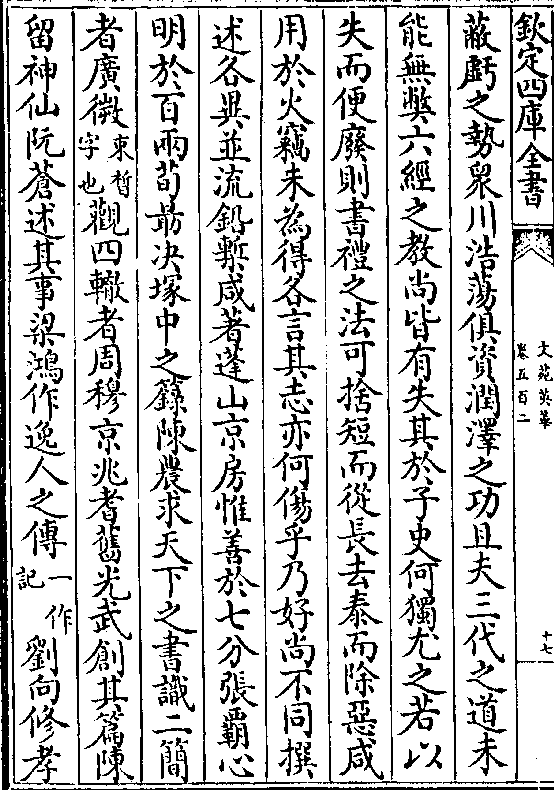 欽定四庫全書
文苑英華
卷五百二
十七
蔽虧之勢衆川浩蕩俱資潤澤之功且夫三代之道未
能無弊六經之教尚皆有失其於子史何獨尤之若以
失而便廢則書禮之法可捨短而從長去泰而除惡咸
用於火竊未為得各言其志亦何傷乎乃好尚不同撰
述各異並流鉛槧咸著蓬山京房惟善於七分張霸心
明於百兩荀勗決塚中之籙陳農求天下之書識二簡
者廣微束晳字也觀四轍者周穆京兆耆舊光武創其篇陳
留神仙阮蒼述其事梁鴻作逸人之傳一作記劉向修孝